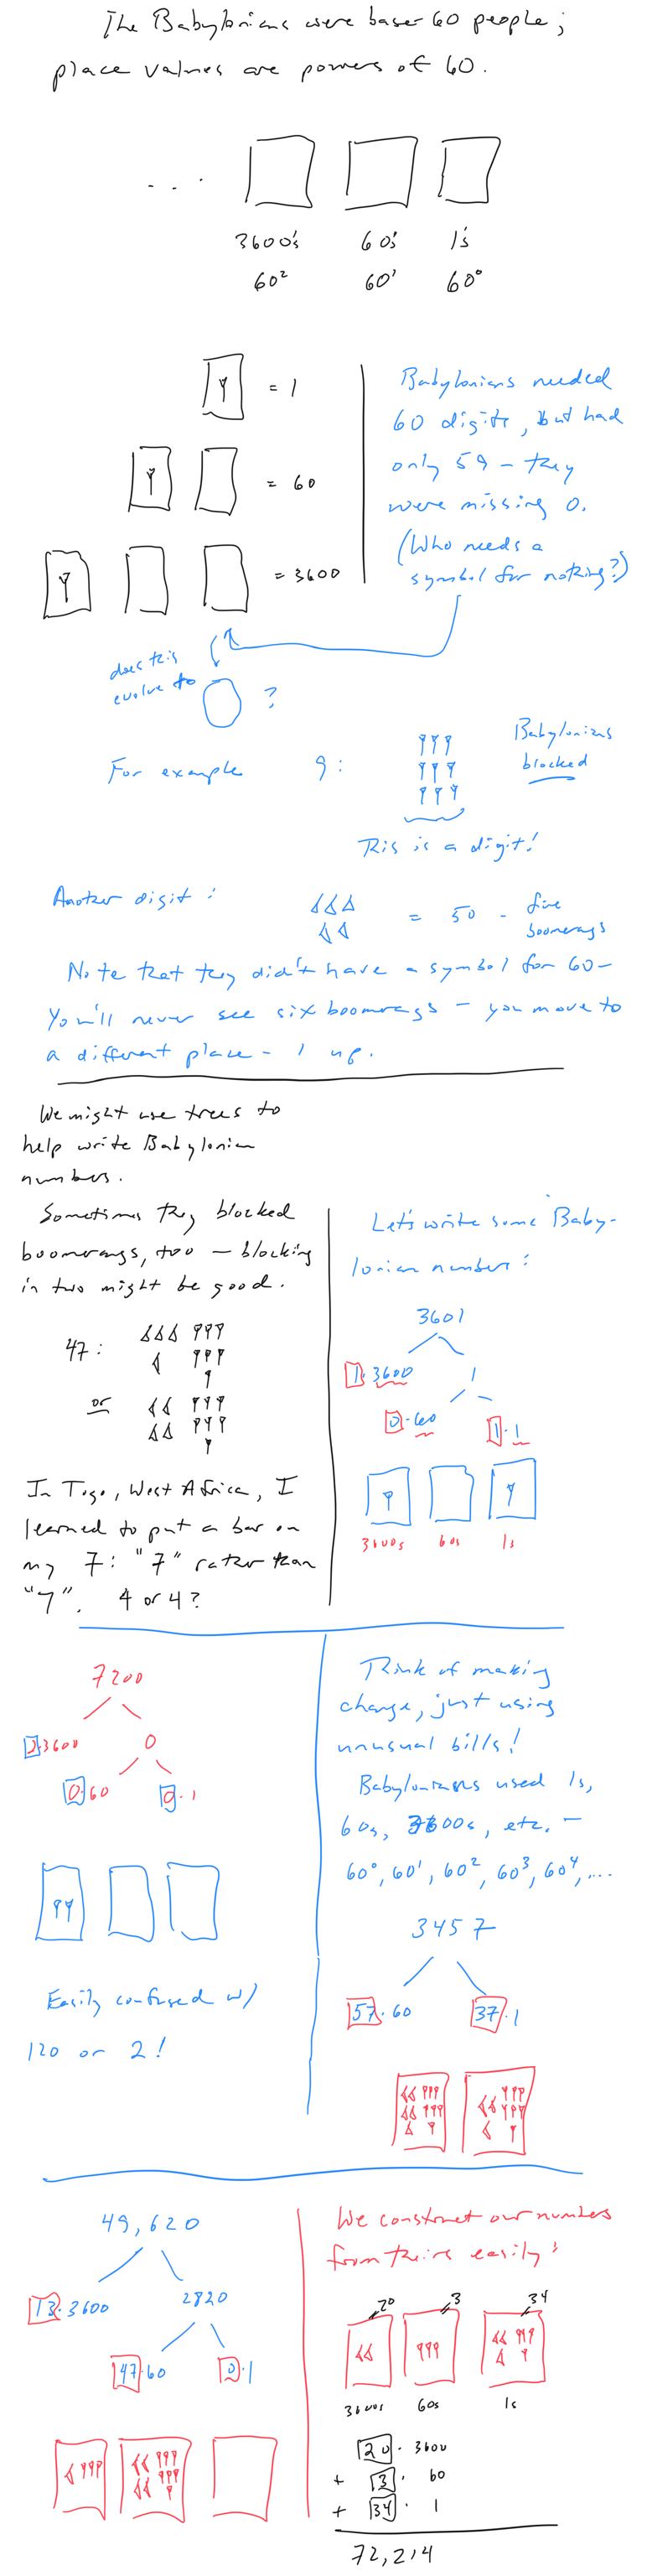 The Babylonians were base-60 people;
place values are powers of 60.
. . .
3600's 60's 1's
60² 60¹ 60⁰
= 1
= 60
= 3600
Babylonians needed
60 digits, but had
only 59 - they
were missing 0.
(Who needs a
symbol for nothing?)
does this
evolve to
?
For example 9:
Babylonians
blocked
This is a digit!
Another digit:
= 50 - five
boomerangs
Note that they didn't have a symbol for 60 -
You'll never see six boomerangs - you move to
a different place - 1 up.
We might use trees to
help write Babylonian
numbers.
Sometimes they blocked
boomerangs, too - blocking
in twos might be good.
47:
or
In Togo, West Africa, I
learned to put a bar on
my 7: "7" rather than
"7". 4 or 4?
Let's write some Baby-
lonian numbers:
3601
1·3600 1
0·60 1·1
3600s 60s 1s
7200
2·3600 0
0·60 0·1
Easily confused w/
120 or 2!
Think of making
change, just using
unusual bills!
Babylonians used 1s,
60s, 3600s, etc. -
60⁰, 60¹, 60², 60³, 60⁴, ...
3457
57·60 37·1
49,620
13·3600 2820
47·60 0·1
We construct our numbers
from theirs easily:
20 3 34
3600s 60s 1s
20 · 3600
+ 3 · 60
+ 34 · 1
72,214